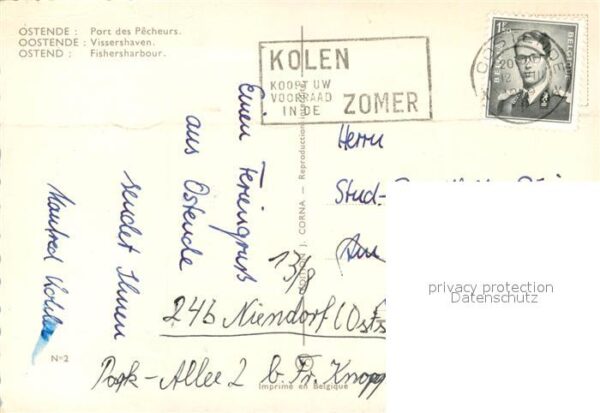 OSTENDE : Port des Pêcheurs.
OOSTENDE : Vissershaven.
OSTEND : Fishersharbour.
KOLEN
KOOPT UW
VOORRAAD
IN DE ZOMER
1F
BELGIE
BELGIQUE
Einen Feriengruß
aus Ostende
sendet Ihnen
Manfred
EDITION J. CORNA — Reproduction interdite
Herrn
Stud-
13/8
24b Niendorf (Osts
Park-Allee 2 b. Fr. Knopp
N°2
Imprimé en Belgique
privacy protection
Datenschutz